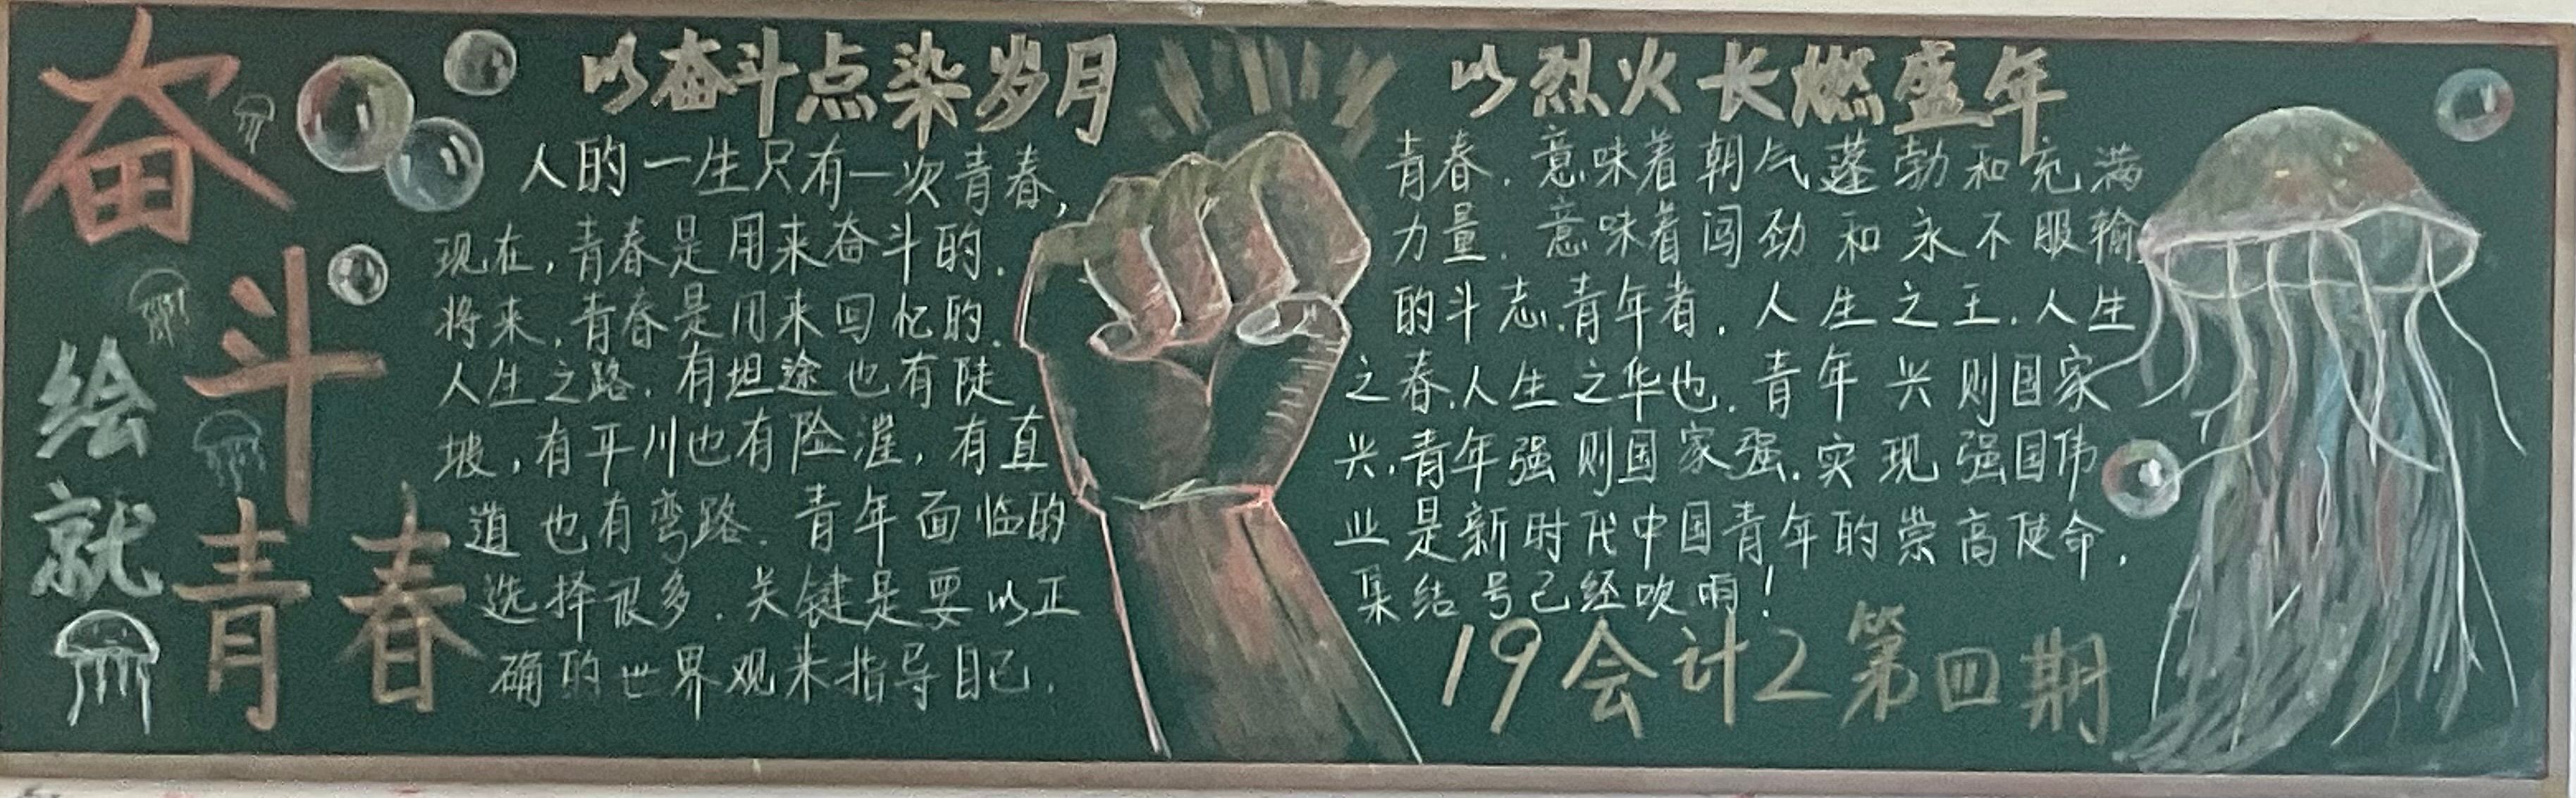 奋斗
绘就
青春
以奋斗点染岁月
人的一生只有一次青春,
现在,青春是用来奋斗的.
将来,青春是用来回忆的.
人生之路.有坦途也有陡
坡,有平川也有险滩,有直
道也有弯路.青年面临的
选择很多.关键是要以正
确的世界观来指导自己.
以烈火长燃盛年
青春.意味着朝气蓬勃和充满
力量.意味着闯劲和永不服输
的斗志.青年者.人生之王.人生
之春.人生之华也.青年兴则国家
兴.青年强则国家强.实现强国伟
业是新时代中国青年的崇高使命,
集结号已经吹响!
19会计2第四期